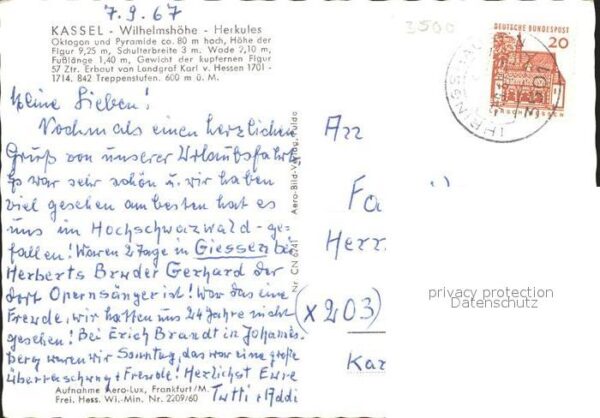 7.9.67
KASSEL - Wilhelmshöhe - Herkules
Oktogon und Pyramide ca. 80 m hoch, Höhe der
Figur 9,25 m, Schulterbreite 3 m. Wade 2,10 m,
Fußlänge 1,40 m, Gewicht der kupfernen Figur
57 Ztr. Erbaut von Landgraf Karl v. Hessen 1701 -
1714. 842 Treppenstufen. 600 m ü. M.
Meine Lieben!
Nochmals einen herzlichen
Gruß von unserer Urlaubsfahrt,
Es war sehr schön u. wir haben
viel gesehen am besten hat es
uns im Hochschwarzwald - ge-
fallen! Waren 2 Tage in Giessen bei
Herberts Bruder Gerhard der
dort Opernsänger ist! War das eine
Freude, wir hatten uns 24 Jahre nicht
gesehen! Bei Erich Brandt in Johannis-
berg waren wir Sonntag, das war eine große
Überraschung + Freude! Herzlichst Eure
Tutti + Addi
Aufnahme Aero-Lux, Frankfurt/M.
Frei. Hess. Wi.-Min. Nr. 2209/60
Nr. CN 6741 Aero-Bild-Verlag, Fulda
3500
DEUTSCHE BUNDESPOST
20
LORSCH/HESSEN
An
Fa
Herr
(x 203)
Kar
privacy protection
Datenschutz